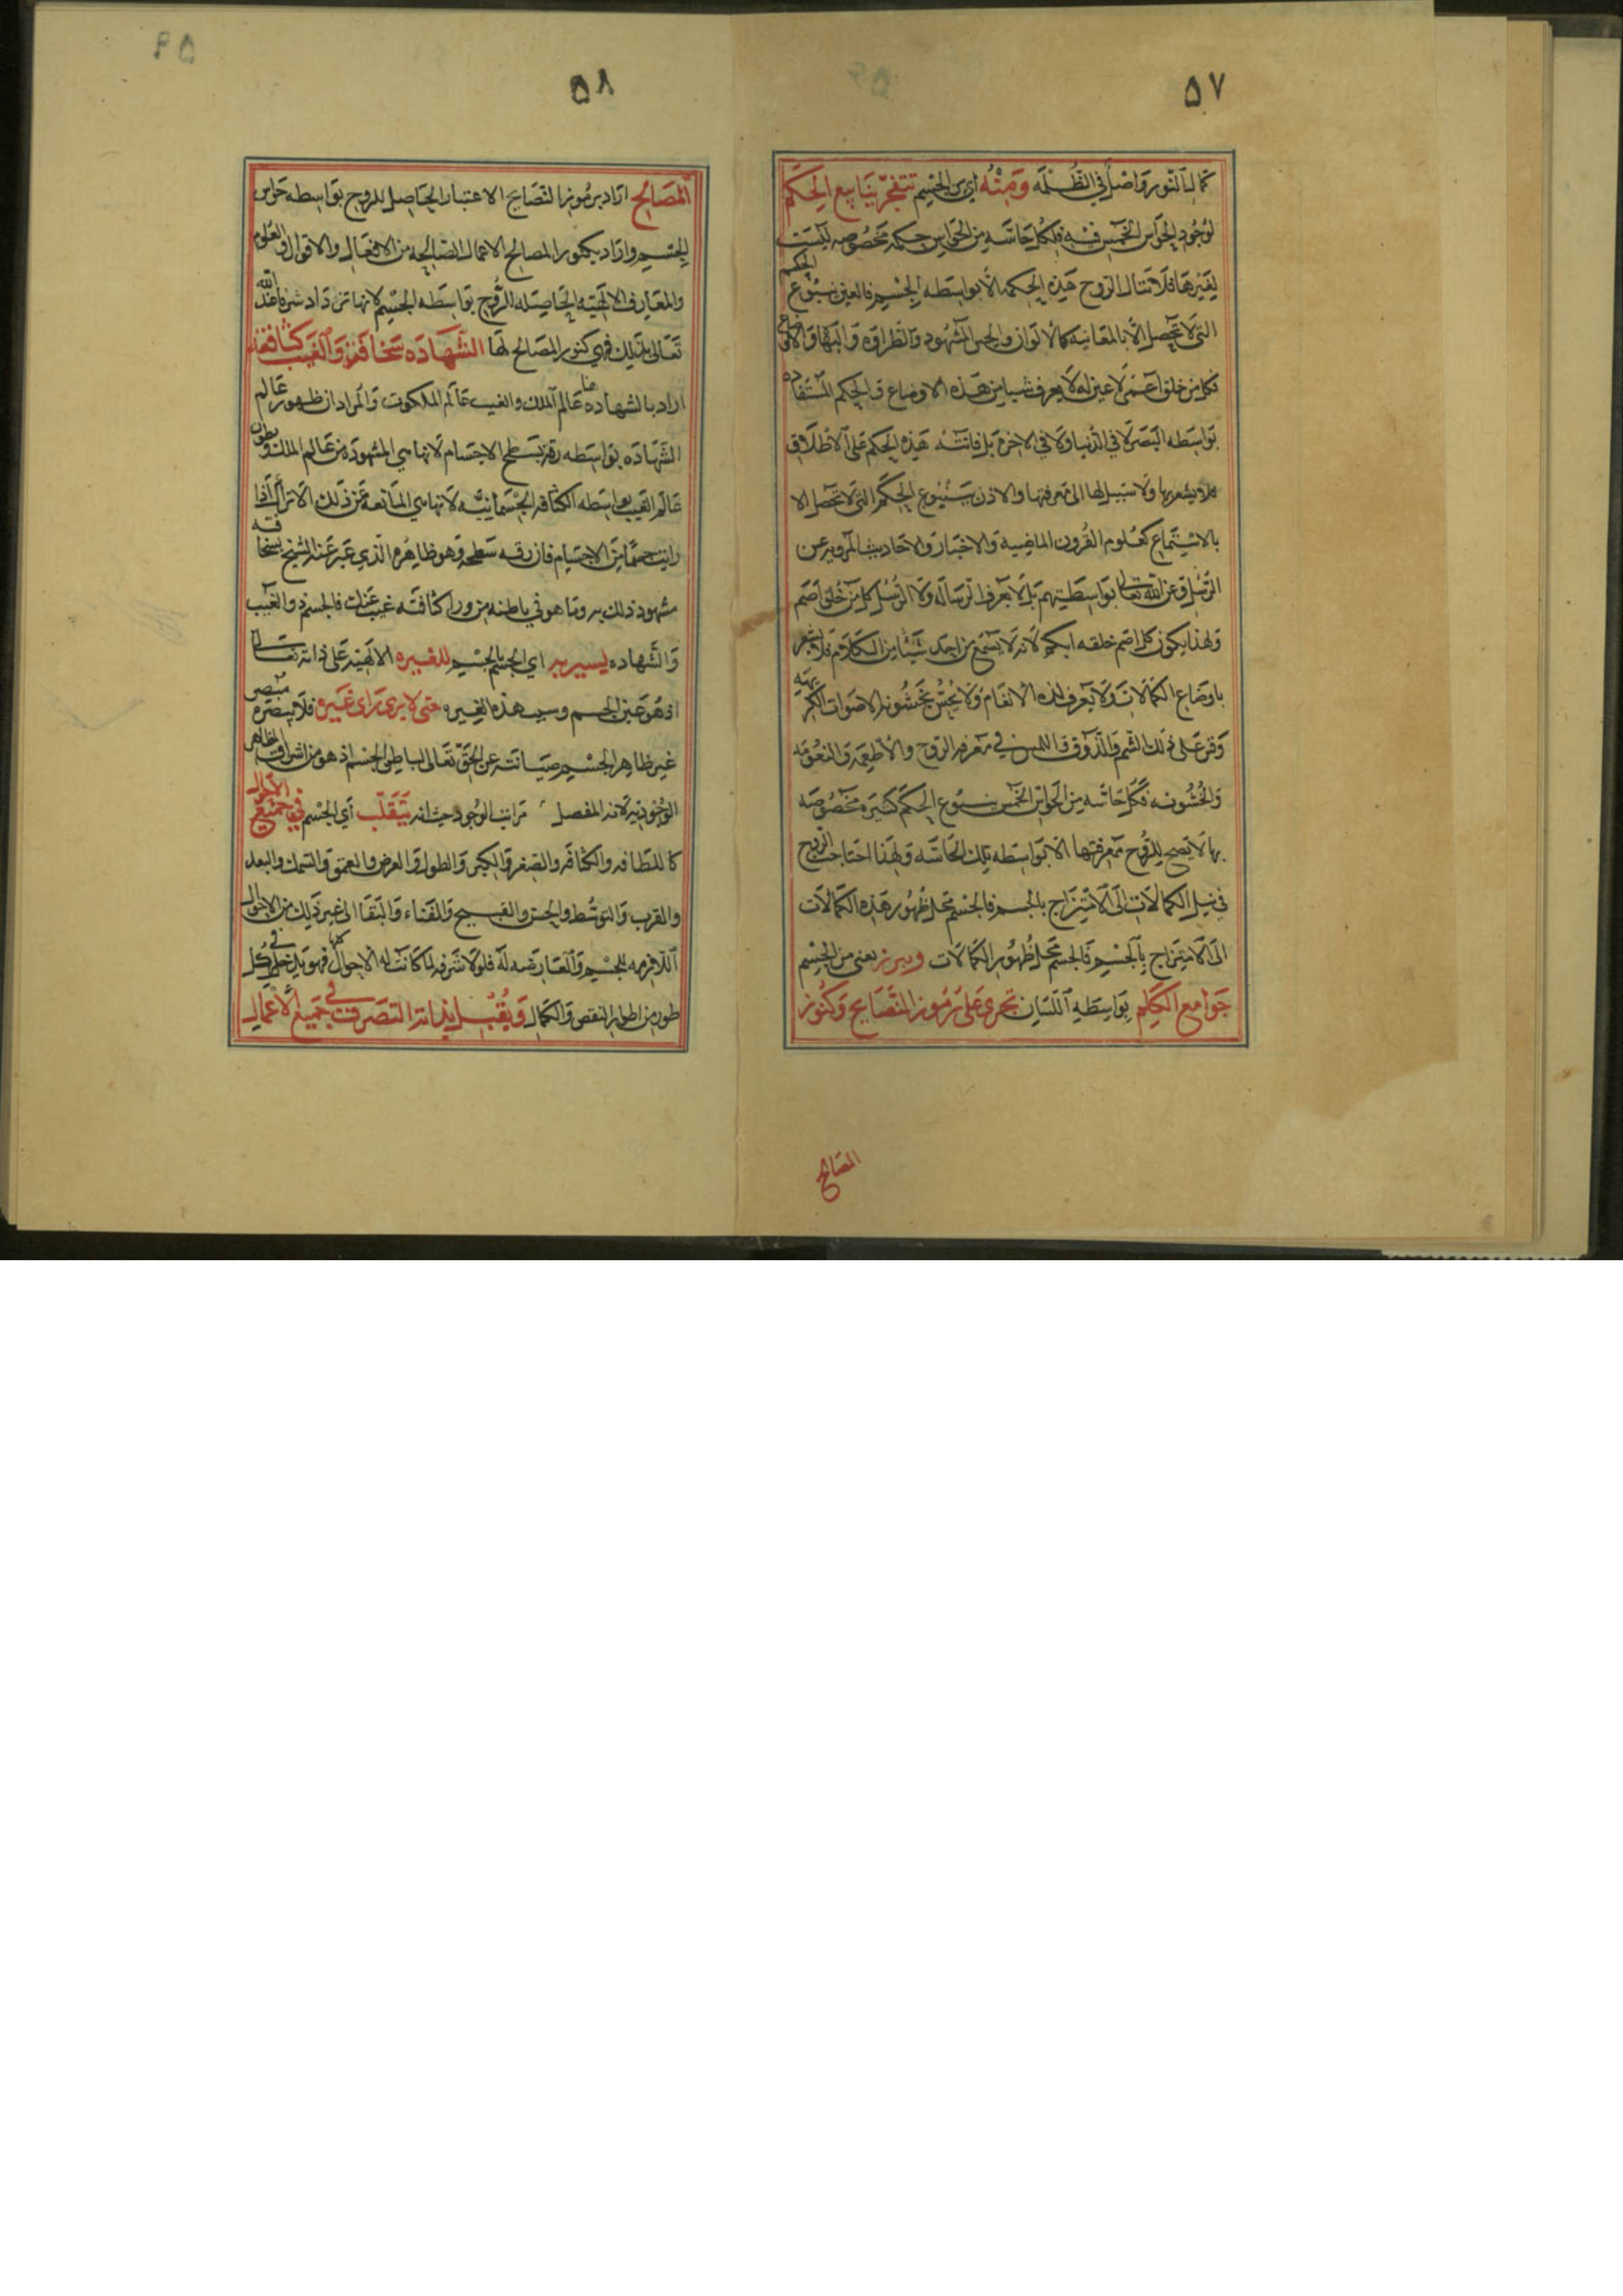 ٥٧
كمال النور واصل في الظلمه ومنه اي من الجسم تتفجر ينابيع الحكم
لوجود الحواس الخمس فيه فلكل حاسه من الحواس حكمه مخصوصه ليست
لغيرها فلا تنال الروح هذه الحكمه الا بواسطه الجسم فالعين ينبوع الحكم
التي لا تحصل الا بالمعاينه كالالوان والحسن المشهود والطراوه والبها والاوضاع
فكل من خلق اعمى لا عين له لا يعرف شيا من هذه الاوضاع والحكم المستفاده
بواسطه البصر لا في الدنيا ولا في الاخره بل فاتته هذه الحكم على الاطلاق
فلا يشعر بها ولا سبيل لها الى معرفتها والاذن ينبوع الحكم التي لا تحصل الا
بالاستماع كعلوم القرون الماضيه والاخبار والاحاديث المرويه عن
الرسل وعن الله تعالى بواسطتهم بل لا يعرف الرساله ولا الرسل كل من خلق اصم
ولهذا يكون كل اصم خلقه ابكم لانه لا يسمع من احد شيئا من الكلام فلا يشعر
باوضاع الكمالات ولا يعرف لذه الانغام ولا يحس بخشونه الاصوات الكريهه
وقس على ذلك الشم والذوق واللمس في معرفه الروح والاطعمه والنعومه
والخشونه فكل حاسه من الحواس الخمس ينبوع الحكم كثيره مخصوصه
بها لا يصح للروح معرفتها الا بواسطه تلك الحاسه ولهذا احتاجت الروح
في نيل الكمالات الى الامتزاج بالجسم فالجسم محل ظهور هذه الكمالات
الى الامتزاج بالجسم فالجسم محل ظهور الكمالات ويبرز يعني من الجسم
جوامع الكلم بواسطه اللسان تجري على رموز النصايح وكنوز
المصالح
٥٨
المصالح اراد برموز النصايح الاعتبار الحاصل للروح بواسطه حواس
الجسم واراد بكنوز المصالح الاعمال الصالحه من الافعال والاقوال والعلوم
والمعارف الالهيه الحاصله للروح بواسطه الجسم لانها تزداد شرفا عند الله
تعالى بتلك فهي كنوز المصالح لها الشهاده سخافته والغيب كثافته
اراد بالشهاده هنا عالم الملك والغيب عالم الملكوت والمراد ان ظهور عالم
الشهاده بواسطه رقة سطح الاجسام لانها هي المشهوده من عالم الملك وبطون
عالم الغيب بواسطه الكثافه الجسمانيه لانها هي المانعه عن ذلك الا تراك اذا
رايت جسما من الاجسام فان رقه سطحه وهو ظاهره الذي عبر عنه الشيخ بسخافته
مشهود ذلك به وما هو في باطنه من ورا كثافته غيب عنك فالجسم والغيب
والشهاده ليسير به اي الجسم بالجسم للغيره الالهيه على ذاته تعالى
اذ هو عين الجسم وسبب هذه الغيره حتى لا يرى راى غيره فلا يبصره مبصر
غير ظاهر الجسم صيانته عن الحق تعالى الباطن الجسم اذ هو من اشراف الظاهر
الوجوديه لانه المفصل مراتب الوجود حيث انه يتقلب اي الجسم في جميع الاحوال
كاللطافه والكثافه والصغر والكبر والطول والعرض والعمق والسمك والبعد
والقرب والتوسط والحسن والقبيح والفناء والبقا الى غير ذلك من الاحوال
اللازمه للجسم والعارضه له فلولا شرفه لما كانت له الاحوال كلها فهو يدخل في كل
طور من اطوار النقص والكمال ويقبل بذاته التصرف في جميع الاعمال